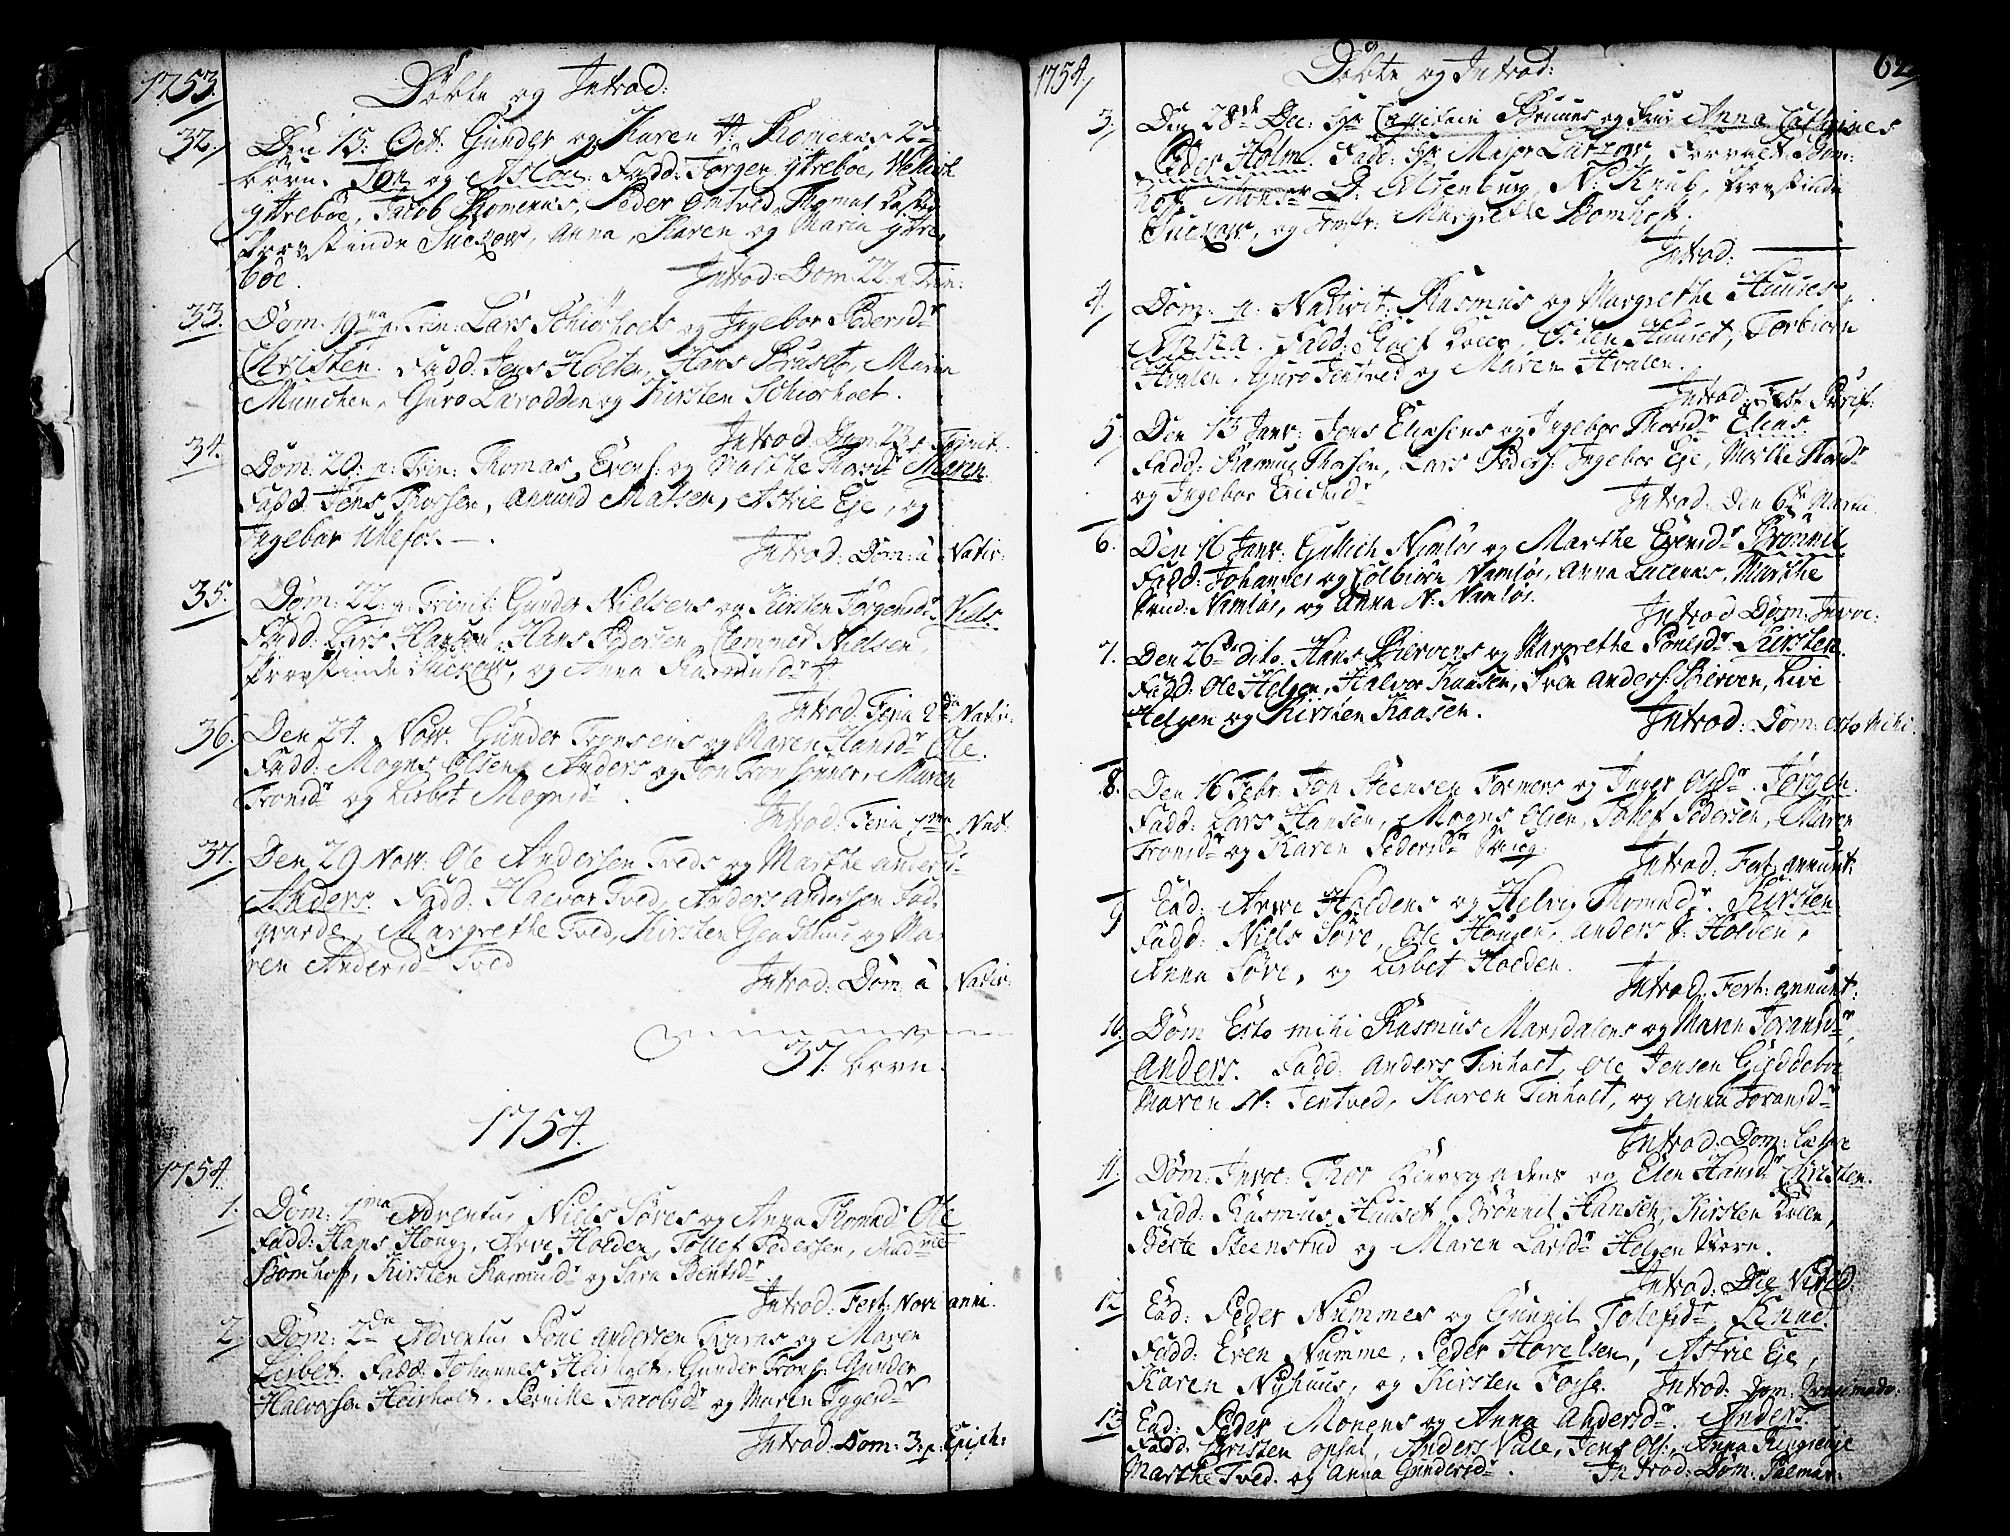 1753.
Döbte og Introd:
32. Den 15. Oct: Gunder og Karen A: Romenæs 2de
börn. Jon og Aslou. Fadd: Jörgen Yttreböe,
Yttreböe, Jacob Romenæs, Peder Omtved, Thomas
Provstinde Suckow, Anna, Karen og Maria Yttre,
böe. Introd: Dom: 22. p. Trin:
33. Dom. 19na p. Trin: Lars Schiörholts og Ingebor Pedersdr
Christen. Fadd: Jens Holten, Hans Bruset, Maria
München, Guro Larodden og Kirsten Schiorholt.
Introd. Dom. 23. p. Trinit.
34. Dom: 20. p. Trin: Thomas Evens: og Marthe Thorsdr Maren.
Fadd. Jens Thorsen, Amund Matsen, Astrie Eje, og
Ingebor Ullefos.
Introd: Dom: a Nativ:
35. Dom: 22. p. Trinit: Gunder Nielsens og Kirsten Jörgensdr Niels.
Fadd: Lars Hansen, Hans Pedersen, Clemmet Nielsen,
Provstinde Suckow, og Anna Rasmusdr
Introd. Feria 2da Nativ:
36. Den 24. Nov. Gunder Tronsens og Maren Hansdr Ole.
Fadd: Mogns Olsen, Anders og Jon Tronsönner, Maren
Tronsdr og Lisbet Mognsdr.
Introd: Feria 1ma Nat:
37. Den 29 Nov. Ole Andersen Tveds og Marthe Andersdr
Anders. Fadd: Halvor Tved, Anders Andersen
Margrethe Tved, Kirsten og Ma-
ren Andersdr Tved
Introd: Dom: a Nativ:
37. börn.
1754.
1754.
1. Dom: 1ma Adventus Niels Söves og Anna Thomasdr Ole
Fadd: Hans Houg, Arve Holden, Tollef Pedersen, Madme
Bomhoff, Kirsten Rasmusdr og Sara Bentsdr
Introd: Fest: Novi anni.
2. Dom: 2da Adventus Poul Andersen og Maren
Lisbet. Fadd: Johannes Heisholt, Gunder Trons: Gunder
Halvorsen Heisholt, Pernille Jacobsdr og Maren
Introd Dom: 3. p: Epiph:
1754.
Döbte og Introd:
62
3. Den 28de Dec: Hr Capitain Bruns og Frue Anna Cathrines
Peder Holm. Fadd: Hr Major Lützow, Forvalt: Bom:
hoff, Monsr D: Altenburg, N: Knub, Provstinde
Suckow, og Jomfr: Margrethe Bomhoff.
Introd:
4. Dom. p. Nativit: Rasmus og Margrethe Huuses
Anna. Fadd: Roef Kleen, Osten Huuset, Torbiorn
Hvalen, Guro Tentved og Maren Hvalen.
Introd: Fest. Purif:
5. Den 13 Janv: Jens Eliæsens og Ingebor Thorsdr Elias
Fadd: Rasmus Thorsen, Lars Peders: Ingebor Eje, Marthe Thorsdr
og Ingebor Erichsdr
Introd. Den 6te Martii.
6. Den 16 Janv: Gullich Namlös og Marthe Evensdr Brönnil
Fadd: Johannes og Colbiörn Namlös, Anna Lacenæs, Marthe
Namlös, og Anna N: Namlös.
Introd Dom: Invoc:
7. Den 26de dito. Hans Biervens og Margrethe Ponisdr Kirsten.
Fadd: Ole Helgen, Halvor Kaasen, Iven Anders: Bierven, Live
Helgen og Kirsten Kaasen.
Introd: Dom: esto mihi.
8. Den 16 Febr. Jon Steensen Formons og Inger Olsdr. Jörgen.
Fadd: Lars Hansen, Mogns Olsen, Tollef Pedersen, Maren
Tronsdr og Karen Pedersdr
Introd. Fest: annunt:
9 Ead: Arve Holdens og Helvig Thomasdr. Kirsten
Fadd: Niels Söve, Ole Hougen, Anders P: Holden,
Anna Söve, og Lisbet Holden.
Introd. Fest: annunt:
10. Dom Esto mihi Rasmus Marsdalens og Maren Joransdr,
Anders. Fadd: Anders Tinholt, Ole Jensen Gisdeboe
Maren N: Tentved, Karen Tinholt, og Anna Joransdr
Introd: Dom: Lætare
11. Dom: Invoc: Thor og Elen Hansdr Christen.
Fadd: Rasmus Huuset, Brönnil Hansen, Kirsten Kleen,
Berte Steensrud og Maren Larsdr Helgen
Introd: Die Virid:
12 Ead: Peder Nummes og Gunnil Tollefsdr. Knud.
Fadd: Even Numme, Peder Horelsen, Astrie Eje,
Karen Nyhuus, og Kirsten Forse. Introd: Dom:
13 Ead: Peder Monens og Anna Andersdr. Anders.
Fadd: Christen Opsal, Anders Vale, Jens Ols:, Anna
Marthe Tved. og Anna Gundersdr. Introd: Dom: Palmar: